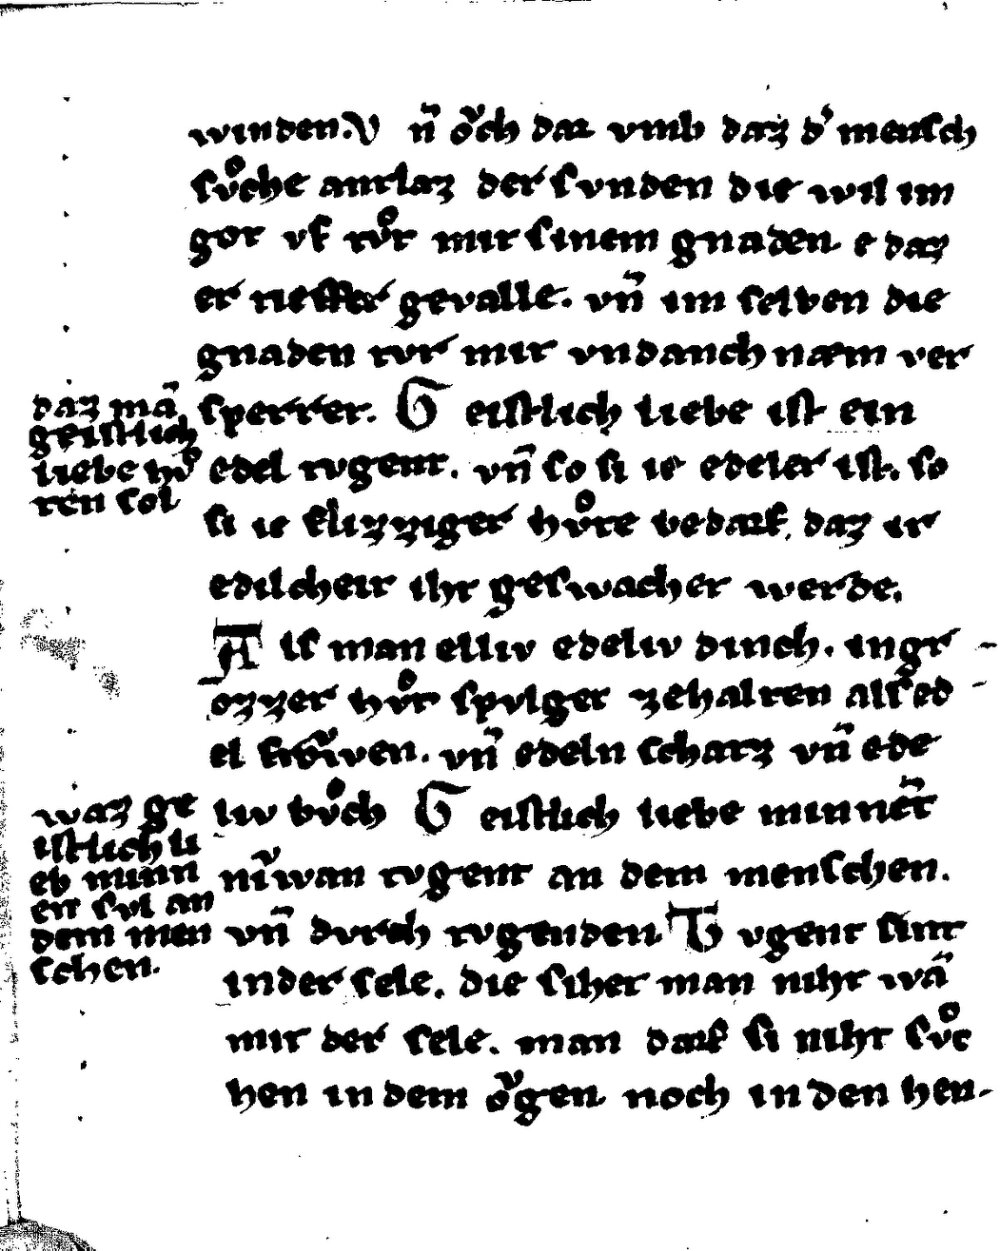 winden. V n̄ oͮch dar vmb daz dˀ mensch
suͦche antlaz der sunden die wil im
got vf tuͦt mit sinem gnaden e daz
er tieffer gevalle. vn̄ im selben die
gnaden tvr mit vndanch næm ver
sperrer. G eistlich liebe ist ein
edel tvgent. vn̄ so si ie edeler ist. so
si ie flizziger hvͦte bedarf. daz ir
edilcheit iht geswachet werde.
A ls man elliv edeliv dinch. in gr
ozzer hvͦt spulget zehalten als ed
el froͮwen. vn̄ edeln scharz vn̄ ede
liv bvͦch G eistlich liebe minnet
niͮwan tvgent an dem menschen.
vn̄ dvrch tvgenden T vgent sint
in der sele. die sihet man niht wā
mit der sele. man darf si niht svͦc
hen in dem oͮgen noch in den hen-
daz mā
geistlich
liebe hvͦ
ten sol
waz ge
istlich li
eb minn
en sul an
dem men
schen.